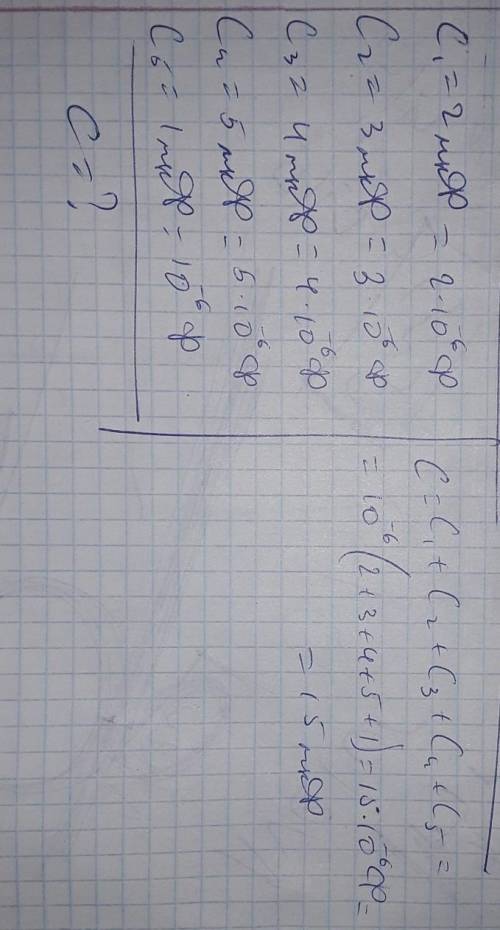 C₁ = 2 мкФ = 2·10⁻⁶ Ф
C₂ = 3 мкФ = 3·10⁻⁶ Ф
C₃ = 4 мкФ = 4·10⁻⁶ Ф
C₄ = 5 мкФ = 5·10⁻⁶ Ф
C₅ = 1 мкФ = 10⁻⁶ Ф
C = ?
C = C₁ + C₂ + C₃ + C₄ + C₅ =
= 10⁻⁶ (2+3+4+5+1) = 15·10⁻⁶ Ф =
= 15 мкФ